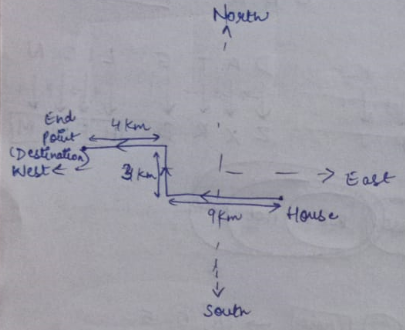 North
4 Km
End
Point
(Destination)
West
3 Km
East
9 Km
House
South